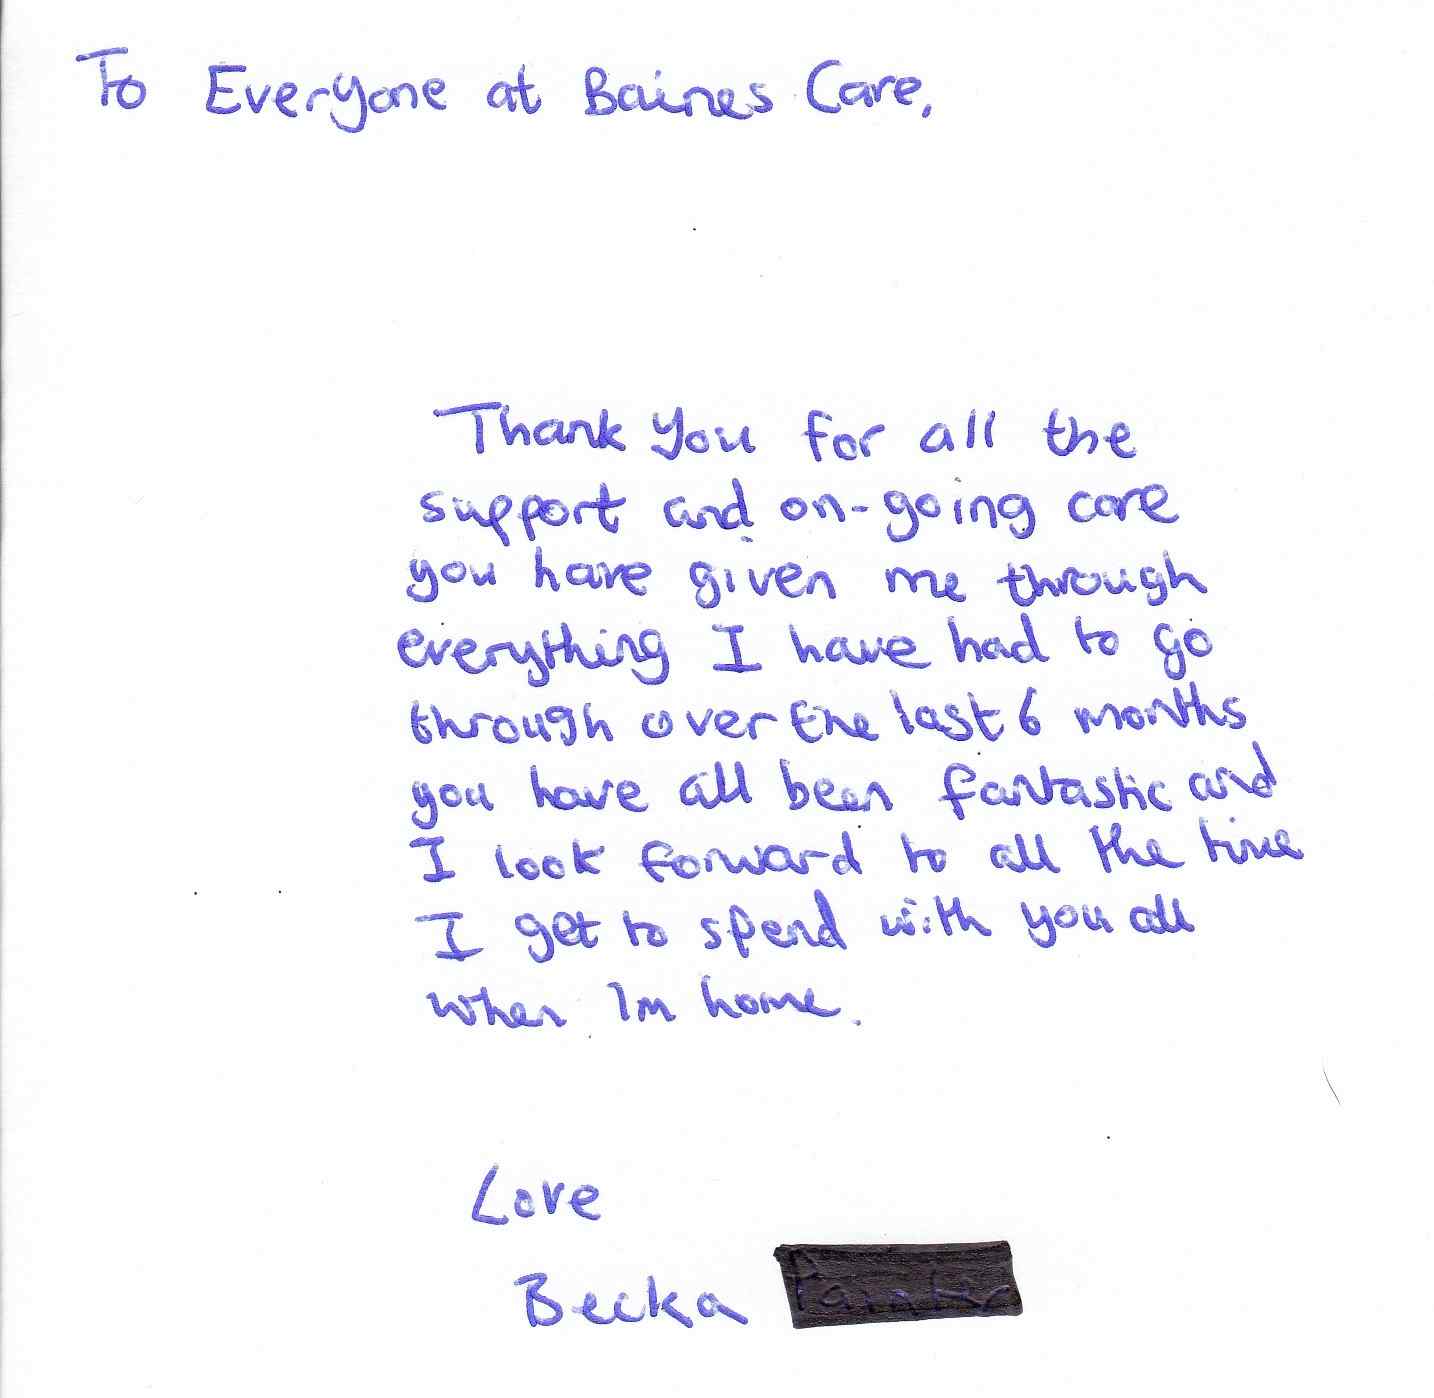 To Everyone at Baines Care,
Thank you for all the
support and on-going care
you have given me through
everything I have had to go
through over the last 6 months
you have all been fantastic and
I look forward to all the time
I get to spend with you all
when Im home.
Love
Becka